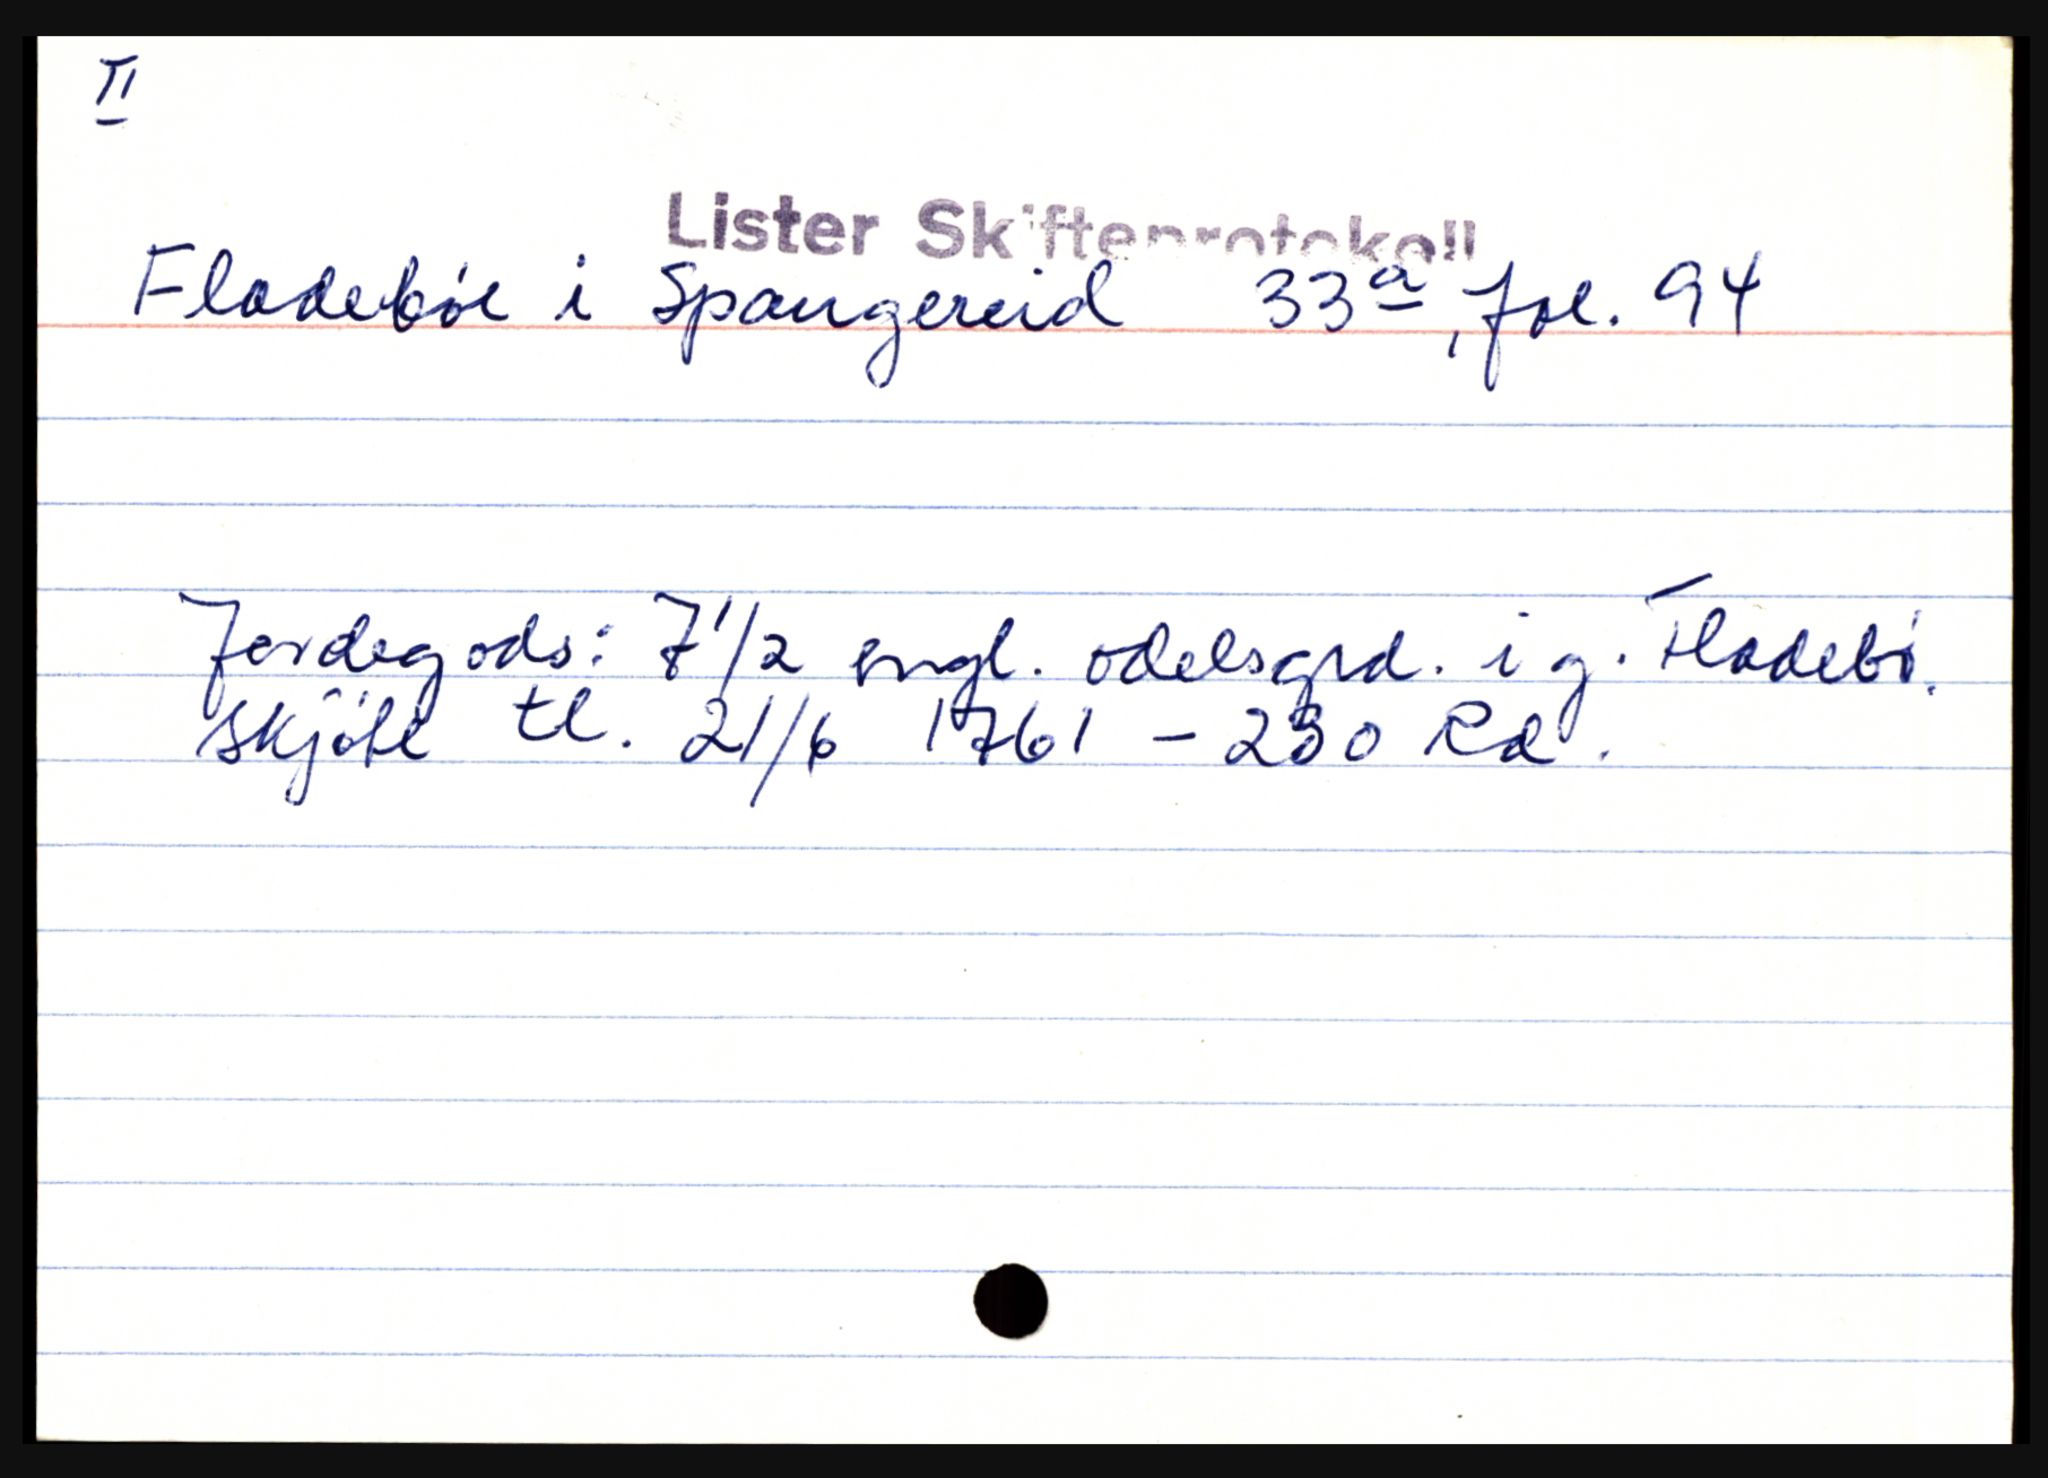 II
Lister Skifteprotokoll
Fladebøe i Spangereid 33a, fol. 94
Jordegods: 7 1/2 engl. odelsgrd. i g. Fladebø.
Skjöte tl. 21/6 1761 - 230 Rd.